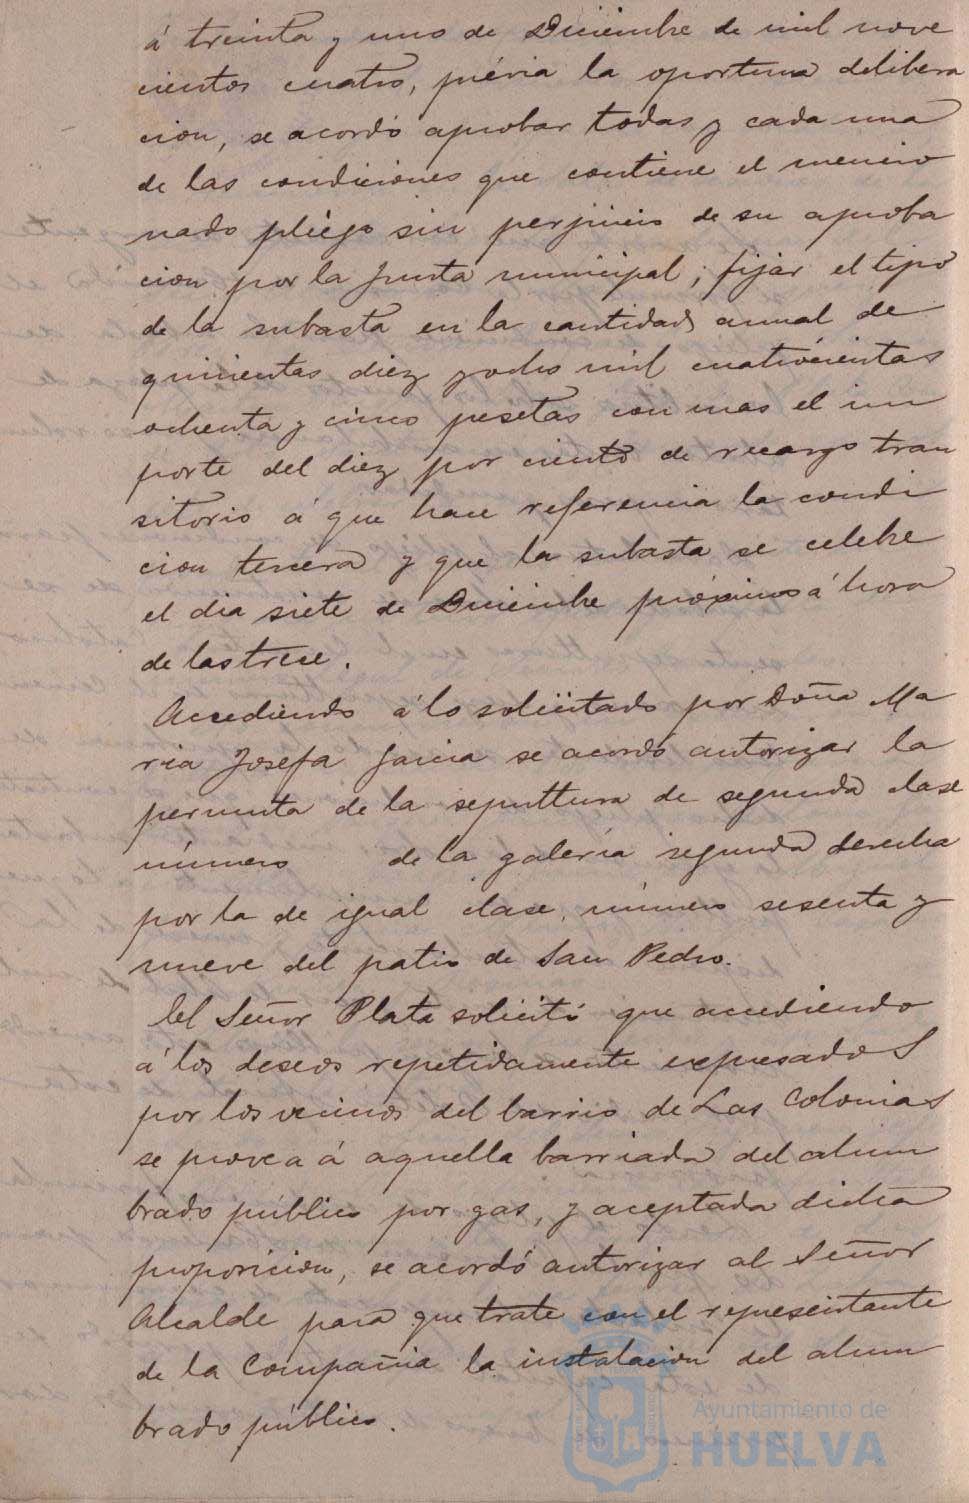 á treinta y uno de Diciembre de mil nove
cientos cuatro, prévia la oportuna delibera
cion, se acordó aprobar todas y cada una
de las condiciones que contiene el mencio
nado pliégo sin perjuicio de su aproba
cion por la Junta municipal; fijar el tipo
de la subasta en la cantidad anual de
quinientas diez y ocho mil cuatrocientas
ochenta y cinco pesetas con mas el im
porte del diez por ciento de recargo tran
sitorio á que hace referencia la condi
cion tercera y que la subasta se celebre
el dia siete de Diciembre próximo á hora
de las trece.
Accediendo á lo solicitado por Doña Ma
ria Josefa Garcia se acordó autorizar la
permuta de la sepultura de segunda clase
número de la galería segunda derecha
por la de igual clase, número sesenta y
nueve del patio de San Pedro.
El Señor Plata solicitó que accediendo
á los deseos repetidamente expresados
por los vecinos del barrio de Las Colonias
se provea á aquella barriada del alum
brado público por gas, y aceptada dicha
proposicion, se acordó autorizar al Señor
Alcalde para que trate con el representante
de la Compañia la instalacion del alum
brado público.
Ayuntamiento de
HUELVA